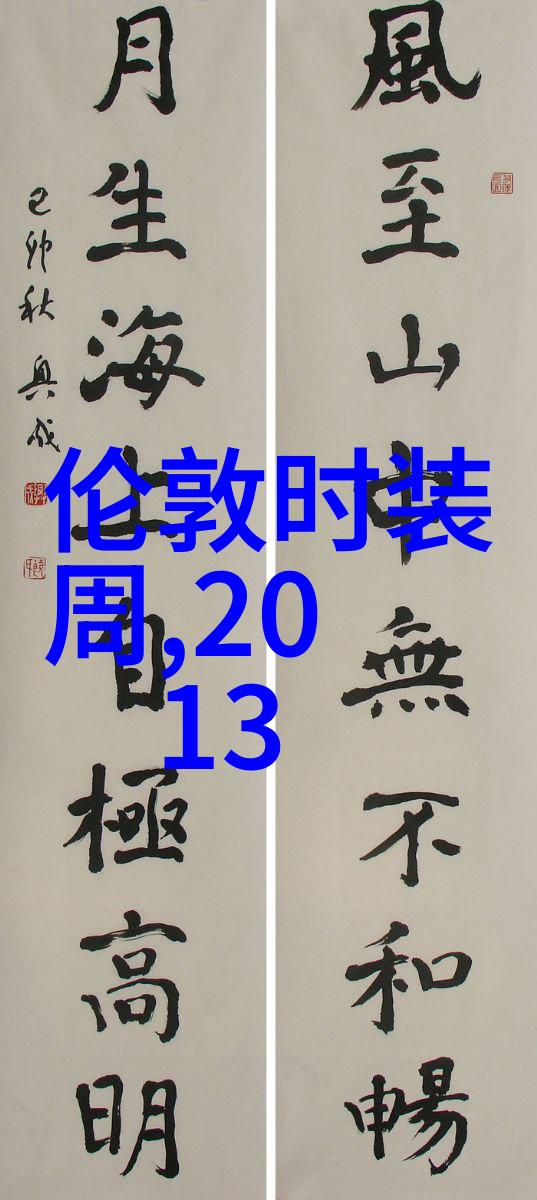 風至山中無不和暢
月生海上自極高明
己卯秋 興成
伦敦时装
周,20
13